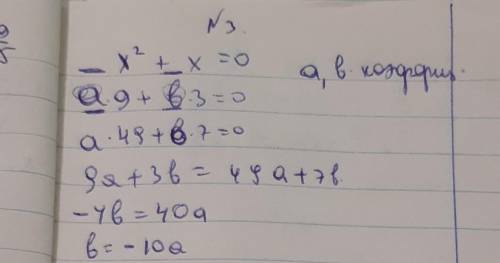 9/5
№3.
_ x² + _ x = 0
a, в. коэффиц.
a·9 + в·3 = 0
a·49 + в·7 = 0
9a + 3в = 49a + 7в
-4в = 40a
в = -10a